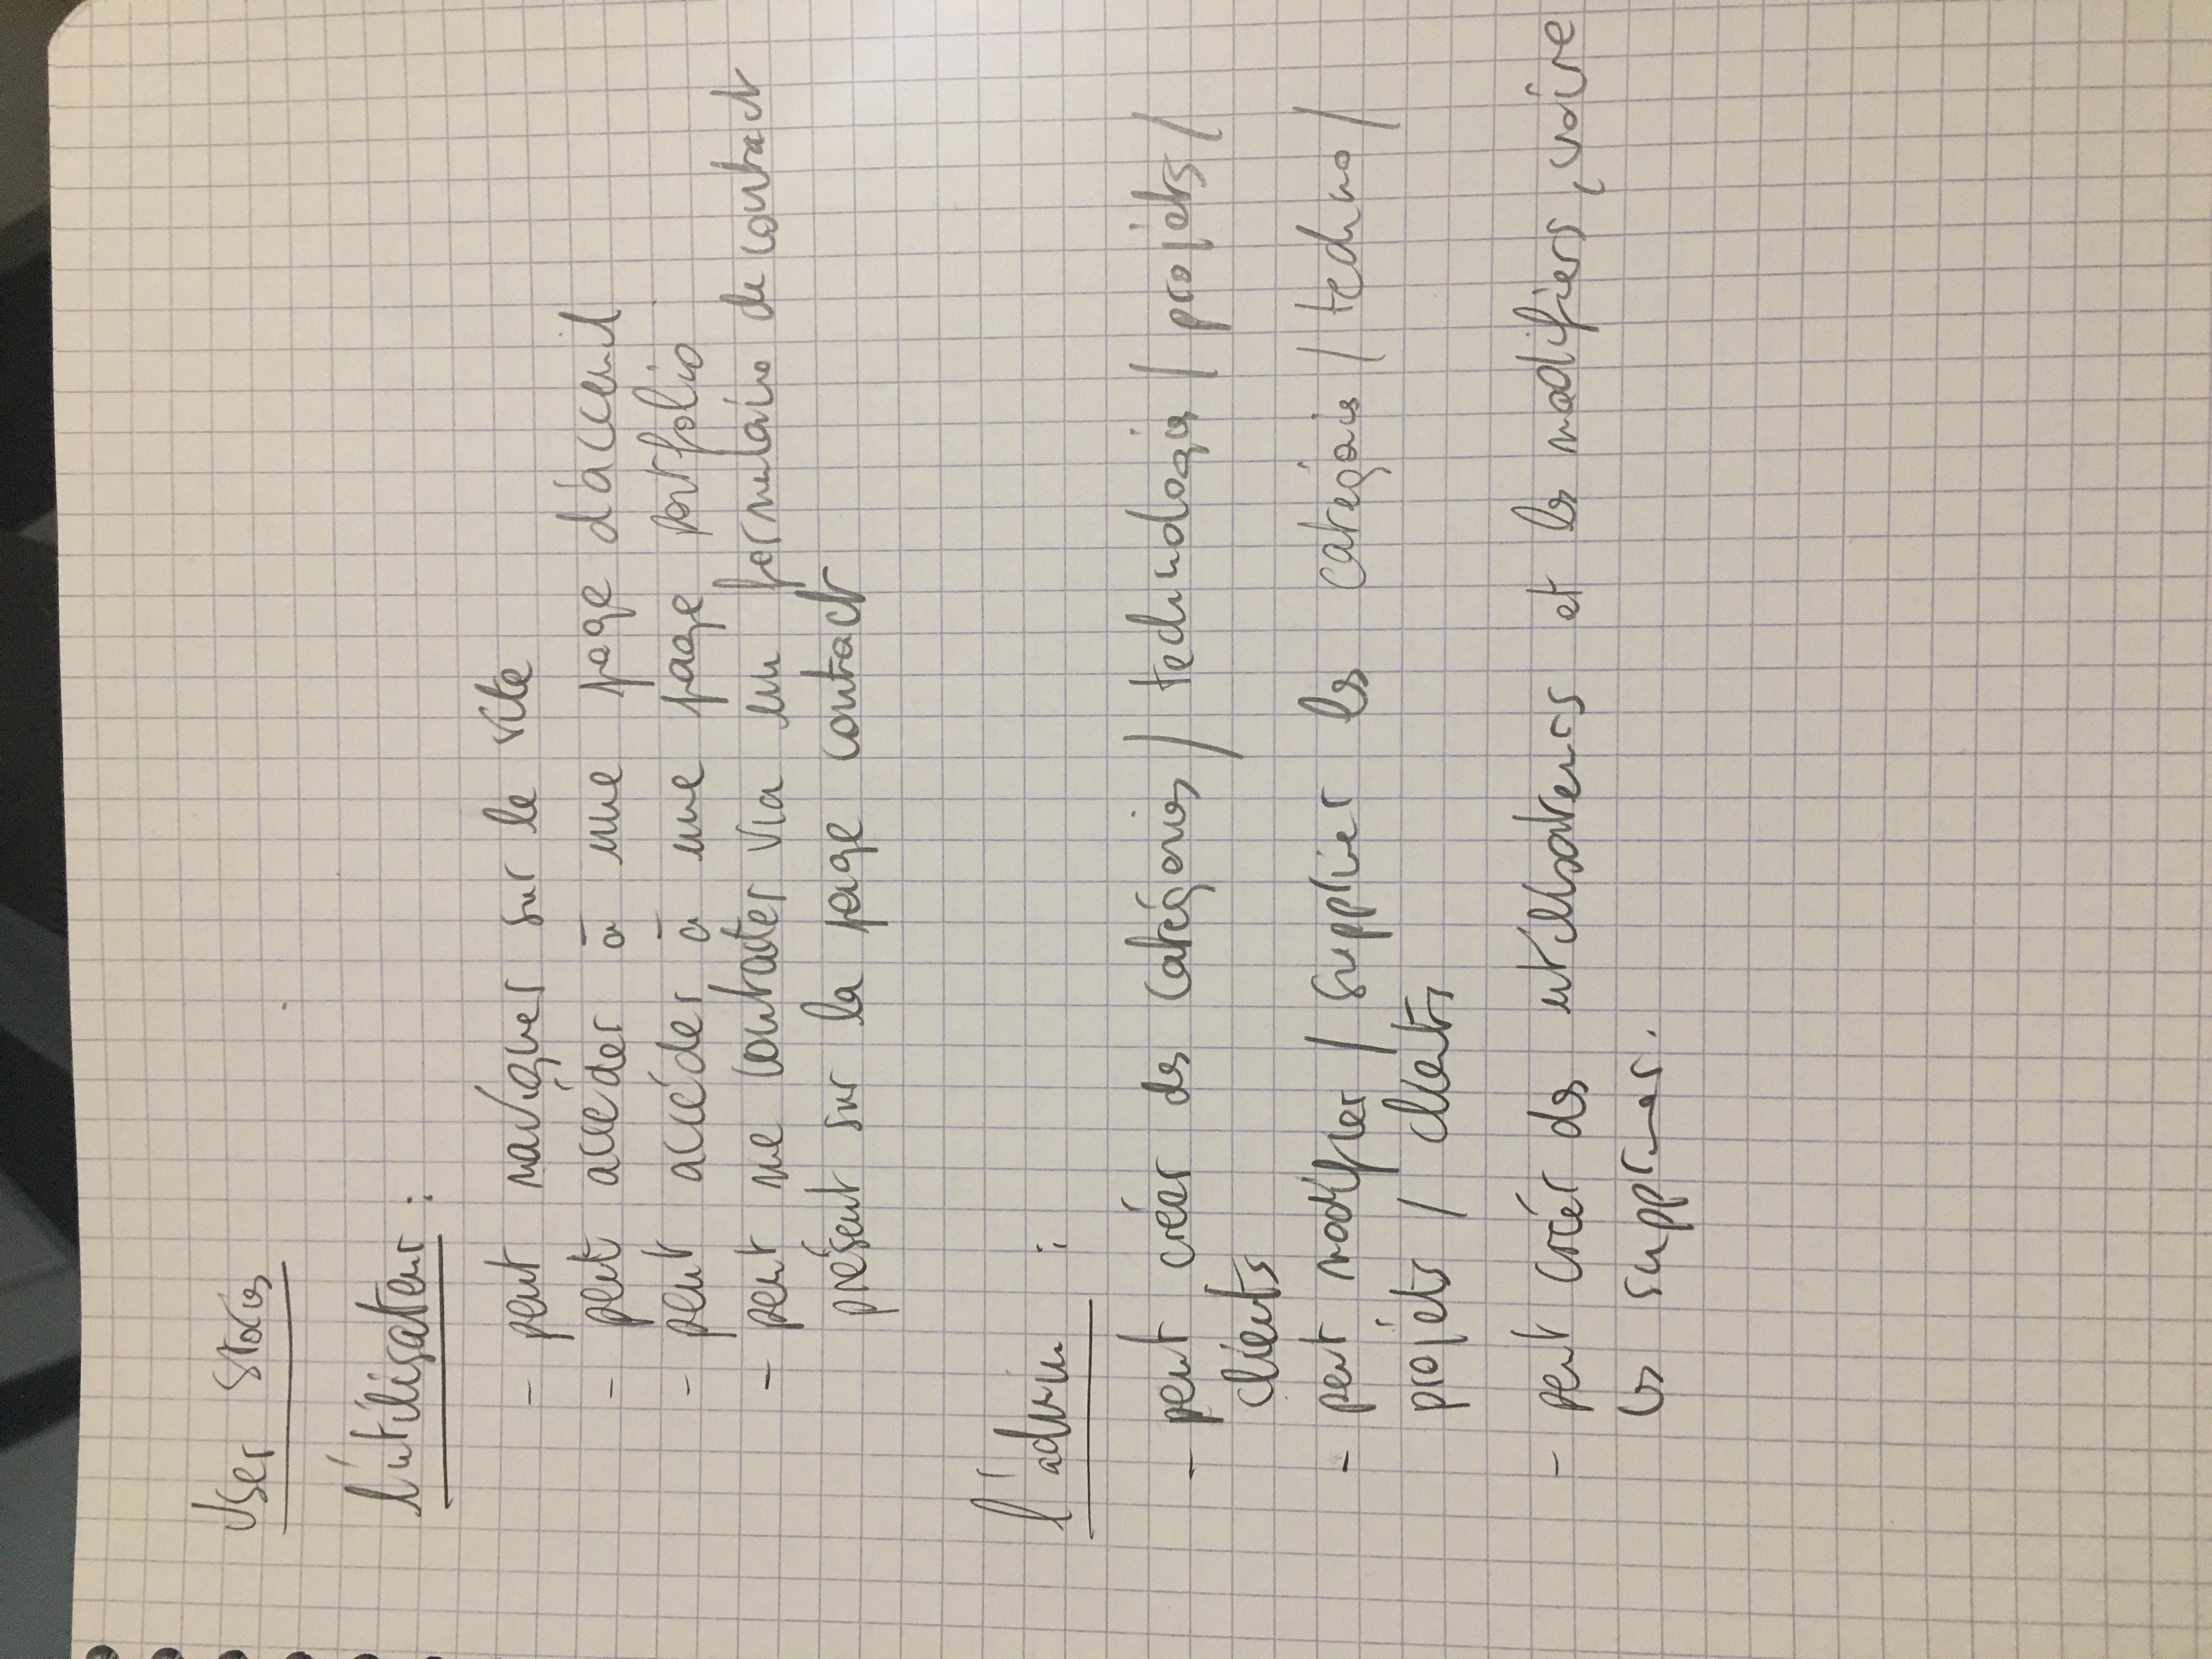 User Stories
l'utilisateur :
- peut naviguer sur le site
- peut accéder à une page d'acceuil
- peut accéder à une page portfolio
- peut me contacter via un formulaire de contact
présent sur la page contact
l'admin :
- peut créer des catégories / technologies / projets /
clients
- peut modifier / supprimer les catégories / techno /
projets / clients
- peut créer des utilisateurs et les modifiers, voire
les supprimer.